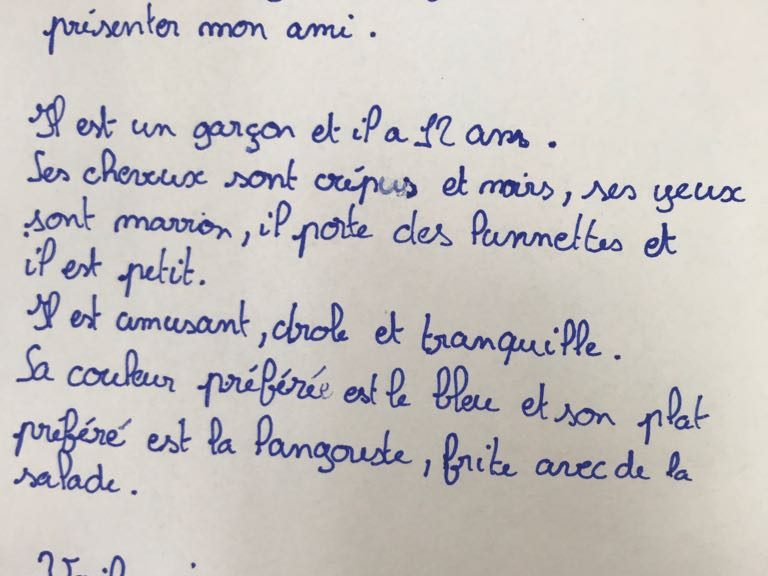 présenter mon ami.
Il est un garçon et il a 12 ans.
Ses cheveux sont crépus et noirs, ses yeux
sont marron, il porte des lunnettes et
il est petit.
Il est amusant, drole et tranquille.
Sa couleur préférée est le bleu et son plat
préféré est la langouste, frite avec de la
salade.